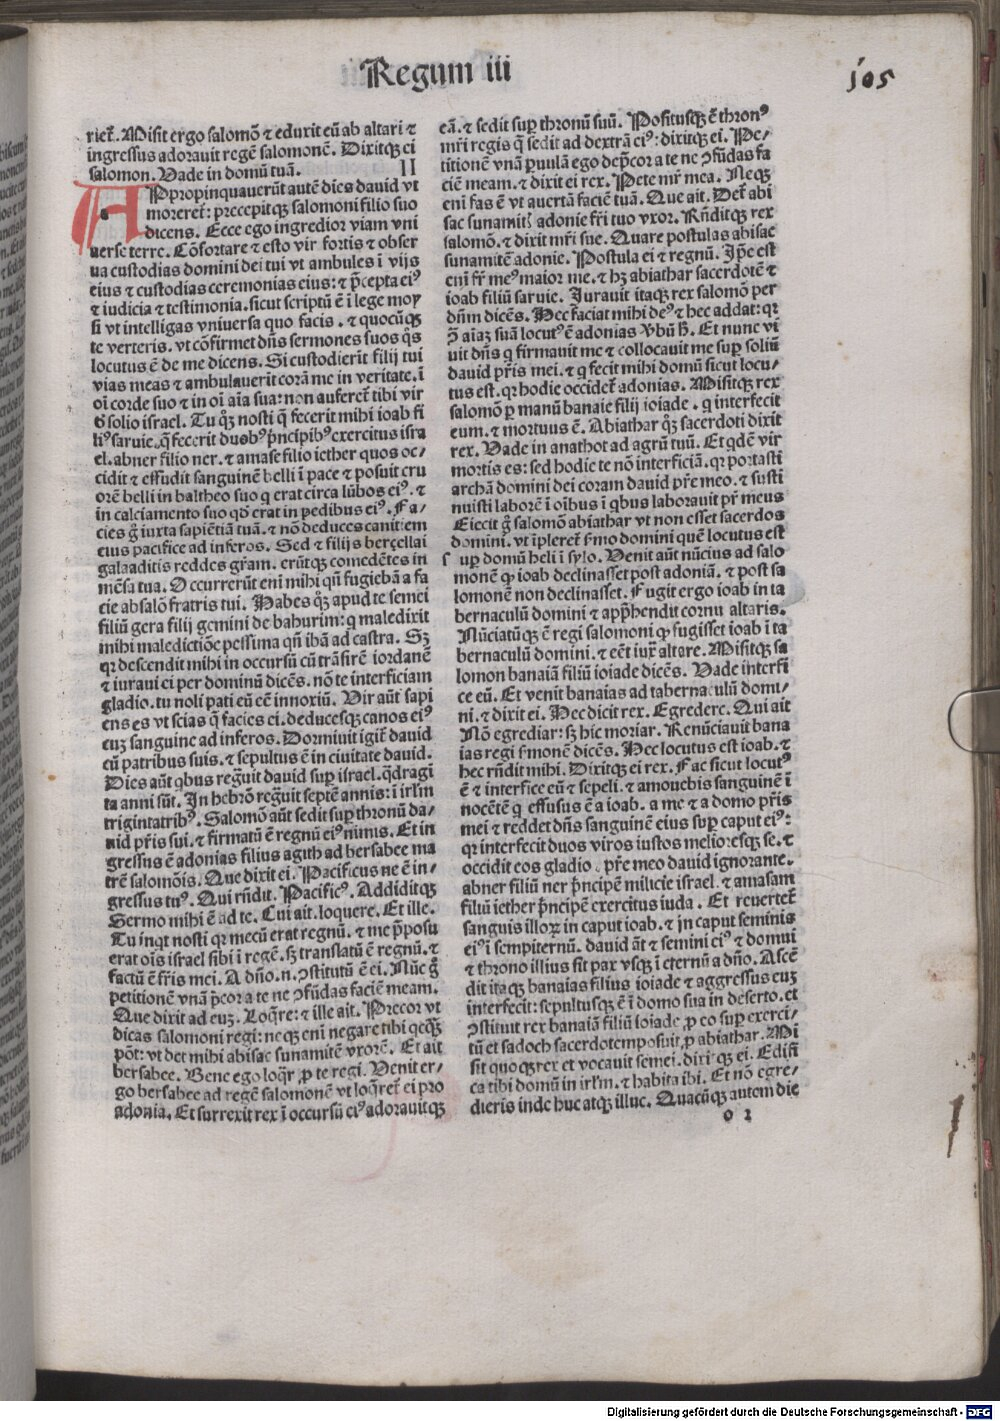 Regum iii
105
riet᷑. Misit ergo salomō ⁊ eduxit eū ab altari ⁊
ingressus adorauit regē salomonē. Dixitqꝫ ei
salomon. Uade in domū tuā. II
Appropinquauerūt autē dies dauid vt
moreret᷑: precepitqꝫ salomoni filio suo
dicens. Ecce ego ingredior viam vni
uerse terre. Cōfortare ⁊ esto vir fortis ⁊ obser
ua custodias domini dei tui vt ambules ī vijs
eius ⁊ custodias ceremonias eius: ⁊ p̄cepta eiꝰ
⁊ iudicia ⁊ testimonia. sicut scriptū ē ī lege moy
si vt intelligas vniuersa quo facis. ⁊ quocūqꝫ
te verteris. vt cōfirmet dn̄s sermones suos qͦs
locutus ē de me dicens. Si custodierit filij tui
vias meas ⁊ ambulauerit corā me in veritate. ī
oī corde suo ⁊ in oī aīa sua: non auferet᷑ tibi vir
ð solio israel. Tu qͦꝫ nosti q̄ fecerit mihi ioab fi
liꝰ saruie. q̄ fecerit duobꝰ p̄ncipibꝰ exercitus isra
el. abner filio ner. ⁊ amase filio iether quos oc/
cidit ⁊ effudit sanguinē belli ī pace ⁊ posuit cru
orē belli in baltheo suo q erat circa lūbos eiꝰ. ⁊
in calciamento suo qð erat in pedibus eiꝰ. Fa/
cies gͦ iuxta sapiētiā tuā. ⁊ nō deduces canitiem
eius pacifice ad inferos. Sed ⁊ filijs berçellai
galaaditis reddes gr̄am. erūtqꝫ comedētes in
mēsa tua. Occurrerūt enī mihi qn̄ fugiebā a fa
cie absalō fratris tui. Habes qͦꝫ apud te semei
filiū gera filij gemini de bahurim: q maledixit
mihi maledictiōe pessima qn̄ ibā ad castra. Sꝫ
qꝛ descendit mihi in occursū cū trāsirē iordanē
⁊ iuraui ei per dominū dicēs. nō te interficiam
gladio. tu noli pati eū eē innoxiū. Uir aūt sapi
ens es vt scias q̄ facies ei. deducesqꝫ canos eiꝰ
cuꝫ sanguine ad inferos. Dormiuit igit᷑ dauid
cū patribus suis. ⁊ sepultus ē in ciuitate dauid.
Dies aūt qͥbus regͣuit dauid sup̄ israel. qͣdragi
ta anni sūt. In hebrō regͣuit septē annis: ī irl̄m
trigintatribꝰ. Salomō aūt sedit sup̄ thronū da/
uid pr̄is sui. ⁊ firmatū ē regnū eiꝰ nimis. Et in
gressus ē adonias filius agith ad bersabee ma
trē salomōis. Que dixit ei. Pacificus ne ē in/
gressus tuꝰ. Qui rn̄dit. Pacificꝰ. Addiditqꝫ
Sermo mihi ē ad te. Cui ait. loquere. Et ille.
Tu inqͥt nosti qꝛ mecū erat regnū. ⁊ me p̄posu
erat oīs israel sibi ī regē. sꝫ translatū ē regnū. ⁊
factū ē fr̄is mei. A dn̄o. n. ↄstitutū ē ei. Nūc gͦ
petitionē vnā p̄cor a te ne ↄfūdas faciē meam.
Que dixit ad euꝫ. Loqͣre: ⁊ ille ait. Precor vt
dicas salomoni regi: neqꝫ enī negare tibi qcqͣꝫ
pōt: vt det mihi abisac sunamitē vxorē. Et ait
bersabee. Bene ego loqͣr ꝓ te regi. Uenit er/
go bersabee ad regē salomonē vt loqͣret᷑ ei pro
adonia. Et surrexit rex ī occursū eiꝰ adorauitqꝫ
eā. ⁊ sedit sup̄ thronū suū. Positusqꝫ ē thronꝰ
mr̄i regis q̄ sedit ad dextrā eiꝰ: dixitqꝫ ei. Pe/
titionē vnā ꝑuulā ego dep̄cor a te ne ↄfūdas fa
ciē meam. ⁊ dixit ei rex. Pete mr̄ mea. Neqꝫ
enī fas ē vt auertā faciē tuā. Que ait. Det᷑ abi
sac sunamitꝭ adonie fr̄i tuo vxor. Rn̄ditqꝫ rex
salomō. ⁊ dixit mr̄i sue. Quare postulas abisac
sunamitē adonie. Postula ei ⁊ regnū. Ip̄e est
enī fr̄ meꝰ maior me. ⁊ hꝫ abiathar sacerdotē ⁊
ioab filiū saruie. Jurauit itaqꝫ rex salomō per
dn̄m dicēs. Hec faciat mihi deꝰ ⁊ hec addat: qꝛ
ↄ̄ aīaꝫ suā locutꝰ ē adonias v̓bū h̄. Et nunc vi
uit dn̄s q firmauit me ⁊ collocauit me sup̄ soliū
dauid pr̄is mei. ⁊ q fecit mihi domū sicut locu/
tus est. qꝛ hodie occidet᷑ adonias. Misitqꝫ rex
salomō ꝑ manū banaie filij ioiade. q interfecit
eum. ⁊ mortuus ē. Abiathar qͦꝫ sacerdoti dixit
rex. Uade in anathot ad agrū tuū. Et qͥdē vir
mortis es: sed hodie te nō interficiā. qꝛ portasti
archā domini dei coram dauid pr̄e meo. ⁊ susti
nuisti laborē ī oībus ī qͥbus laborauit pr̄ meus
Eiecit gͦ salomō abiathar vt non esset sacerdos
domini. vt īpleret᷑ s̓mo domini quē locutus est
sup̄ domū heli ī sylo. Uenit aūt nūcius ad salo
monē ꝙ ioab declinasset post adoniā. ⁊ post sa
lomonē non declinasset. Fugit ergo ioab in ta
bernaculū domini ⁊ app̄hendit cornu altaris.
Nūciatūqꝫ ē regi salomoni ꝙ fugisset ioab ī ta
bernaculū domini. ⁊ eēt iuxͣ altare. Misitqꝫ sa
lomon banaiā filiū ioiade dicēs. Uade interfi
ce eū. Et venit banaias ad tabernaculū domi/
ni. ⁊ dixit ei. Hec dicit rex. Egredere. Qui ait
Nō egrediar: sꝫ hic moriar. Renūciauit bana
ias regi s̓monē dicēs. Hec locutus est ioab. ⁊
hec rn̄dit mihi. Dixitqꝫ ei rex. Fac sicut locutꝰ
ē ⁊ interfice eū ⁊ sepeli. ⁊ amouebis sanguinē ī
nocētē q effusus ē a ioab. a me ⁊ a domo pr̄is
mei ⁊ reddet dn̄s sanguinē eius sup̄ caput eiꝰ:
qꝛ interfecit duos viros iustos melioresqꝫ se. ⁊
occidit eos gladio. pr̄e meo dauid ignorante.
abner filiū ner p̄ncipē milicie israel. ⁊ amasam
filiū iether p̄ncipē exercitus iuda. Et reuertet᷑
sanguis illoꝝ in caput ioab. ⁊ in caput seminis
eiꝰ ī sempiternū. dauid āt ⁊ semini eiꝰ ⁊ domui
⁊ throno illius sit pax vsqꝫ ī eternū a dn̄o. Ascē
dit itaqꝫ banaias filius ioiade ⁊ aggressus euꝫ
interfecit: sepultusqꝫ ē ī domo sua in deserto. et
ↄstituit rex banaiā filiū ioiade ꝓ eo sup̄ exerci/
tū et sadoch sacerdotem posuit ꝓ abiathar. Mi
sit quoqꝫ rex et vocauit semei. dixitqꝫ ei. Edifi
ca tibi domū in irl̄m. ⁊ habita ibi. Et nō egre/
dieris inde huc atqꝫ illuc. Quacūqꝫ autem die
o 1
Digitalisierung gefördert durch die Deutsche Forschungsgemeinschaft - DFG